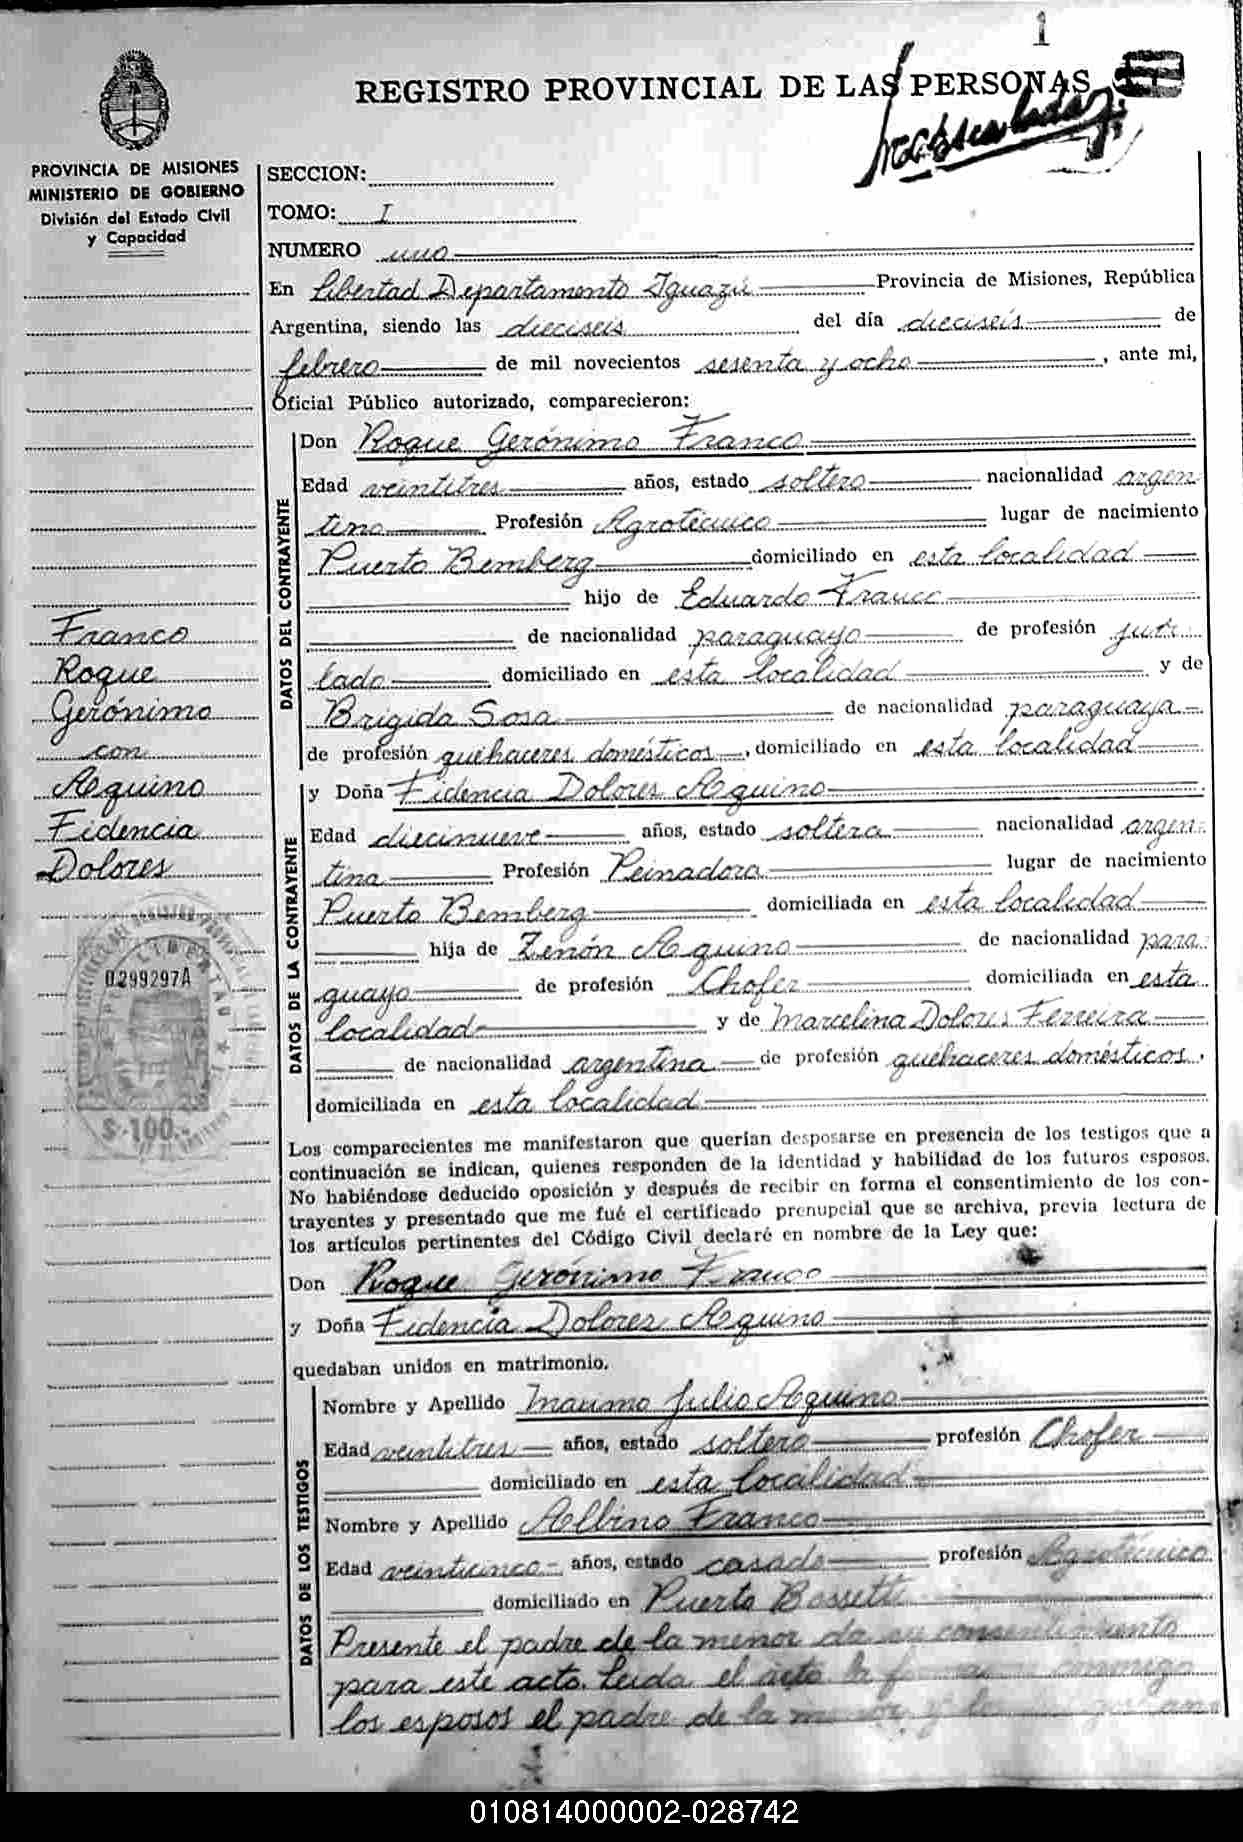 1
REGISTRO PROVINCIAL DE LAS PERSONAS
PROVINCIA DE MISIONES
MINISTERIO DE GOBIERNO
División del Estado Civil
y Capacidad
SECCION:
TOMO: I
NUMERO uno
En Libertad Departamento Iguazú Provincia de Misiones, República
Argentina, siendo las dieciseis del día dieciseis de
febrero de mil novecientos sesenta y ocho, ante mi,
Oficial Público autorizado, comparecieron:
DATOS DEL CONTRAYENTE
Don Roque Gerónimo Franco
Edad veintitres años, estado soltero nacionalidad argen
tino Profesión Agrotécnico lugar de nacimiento
Puerto Bemberg domiciliado en esta localidad
hijo de Eduardo Franco
de nacionalidad paraguayo de profesión jubi
lado domiciliado en esta localidad y de
Brígida Sosa de nacionalidad paraguaya
de profesión quehaceres domésticos, domiciliado en esta localidad
Franco
Roque
Gerónimo
con
Aquino
Fidencia
Dolores
DATOS DE LA CONTRAYENTE
y Doña Fidencia Dolores Aquino
Edad diecinueve años, estado soltera nacionalidad argen-
tina Profesión Peinadora lugar de nacimiento
Puerto Bemberg domiciliada en esta localidad
hija de Zenón Aquino de nacionalidad para-
guayo de profesión Chofer domiciliada en esta
localidad y de Marcelina Dolores Ferreira
de nacionalidad argentina de profesión quehaceres domésticos,
domiciliada en esta localidad
0299297A
LIBERTAD
$ 100.-
Los comparecientes me manifestaron que querían desposarse en presencia de los testigos que a
continuación se indican, quienes responden de la identidad y habilidad de los futuros esposos.
No habiéndose deducido oposición y después de recibir en forma el consentimiento de los con-
trayentes y presentado que me fué el certificado prenupcial que se archiva, previa lectura de
los artículos pertinentes del Código Civil declaré en nombre de la Ley que:
Don Roque Gerónimo Franco
y Doña Fidencia Dolores Aquino
quedaban unidos en matrimonio.
DATOS DE LOS TESTIGOS
Nombre y Apellido Maximo Julio Aquino
Edad veintitres años, estado soltero profesión Chofer
domiciliado en esta localidad
Nombre y Apellido Albino Franco
Edad veinticinco años, estado casado profesión Agrotécnico
domiciliado en Puerto Bossetti
Presente el padre de la menor da su consentimiento
para este acto. Leida el acta la firman conmigo
los esposos el padre de la menor y los
010814000002-028742